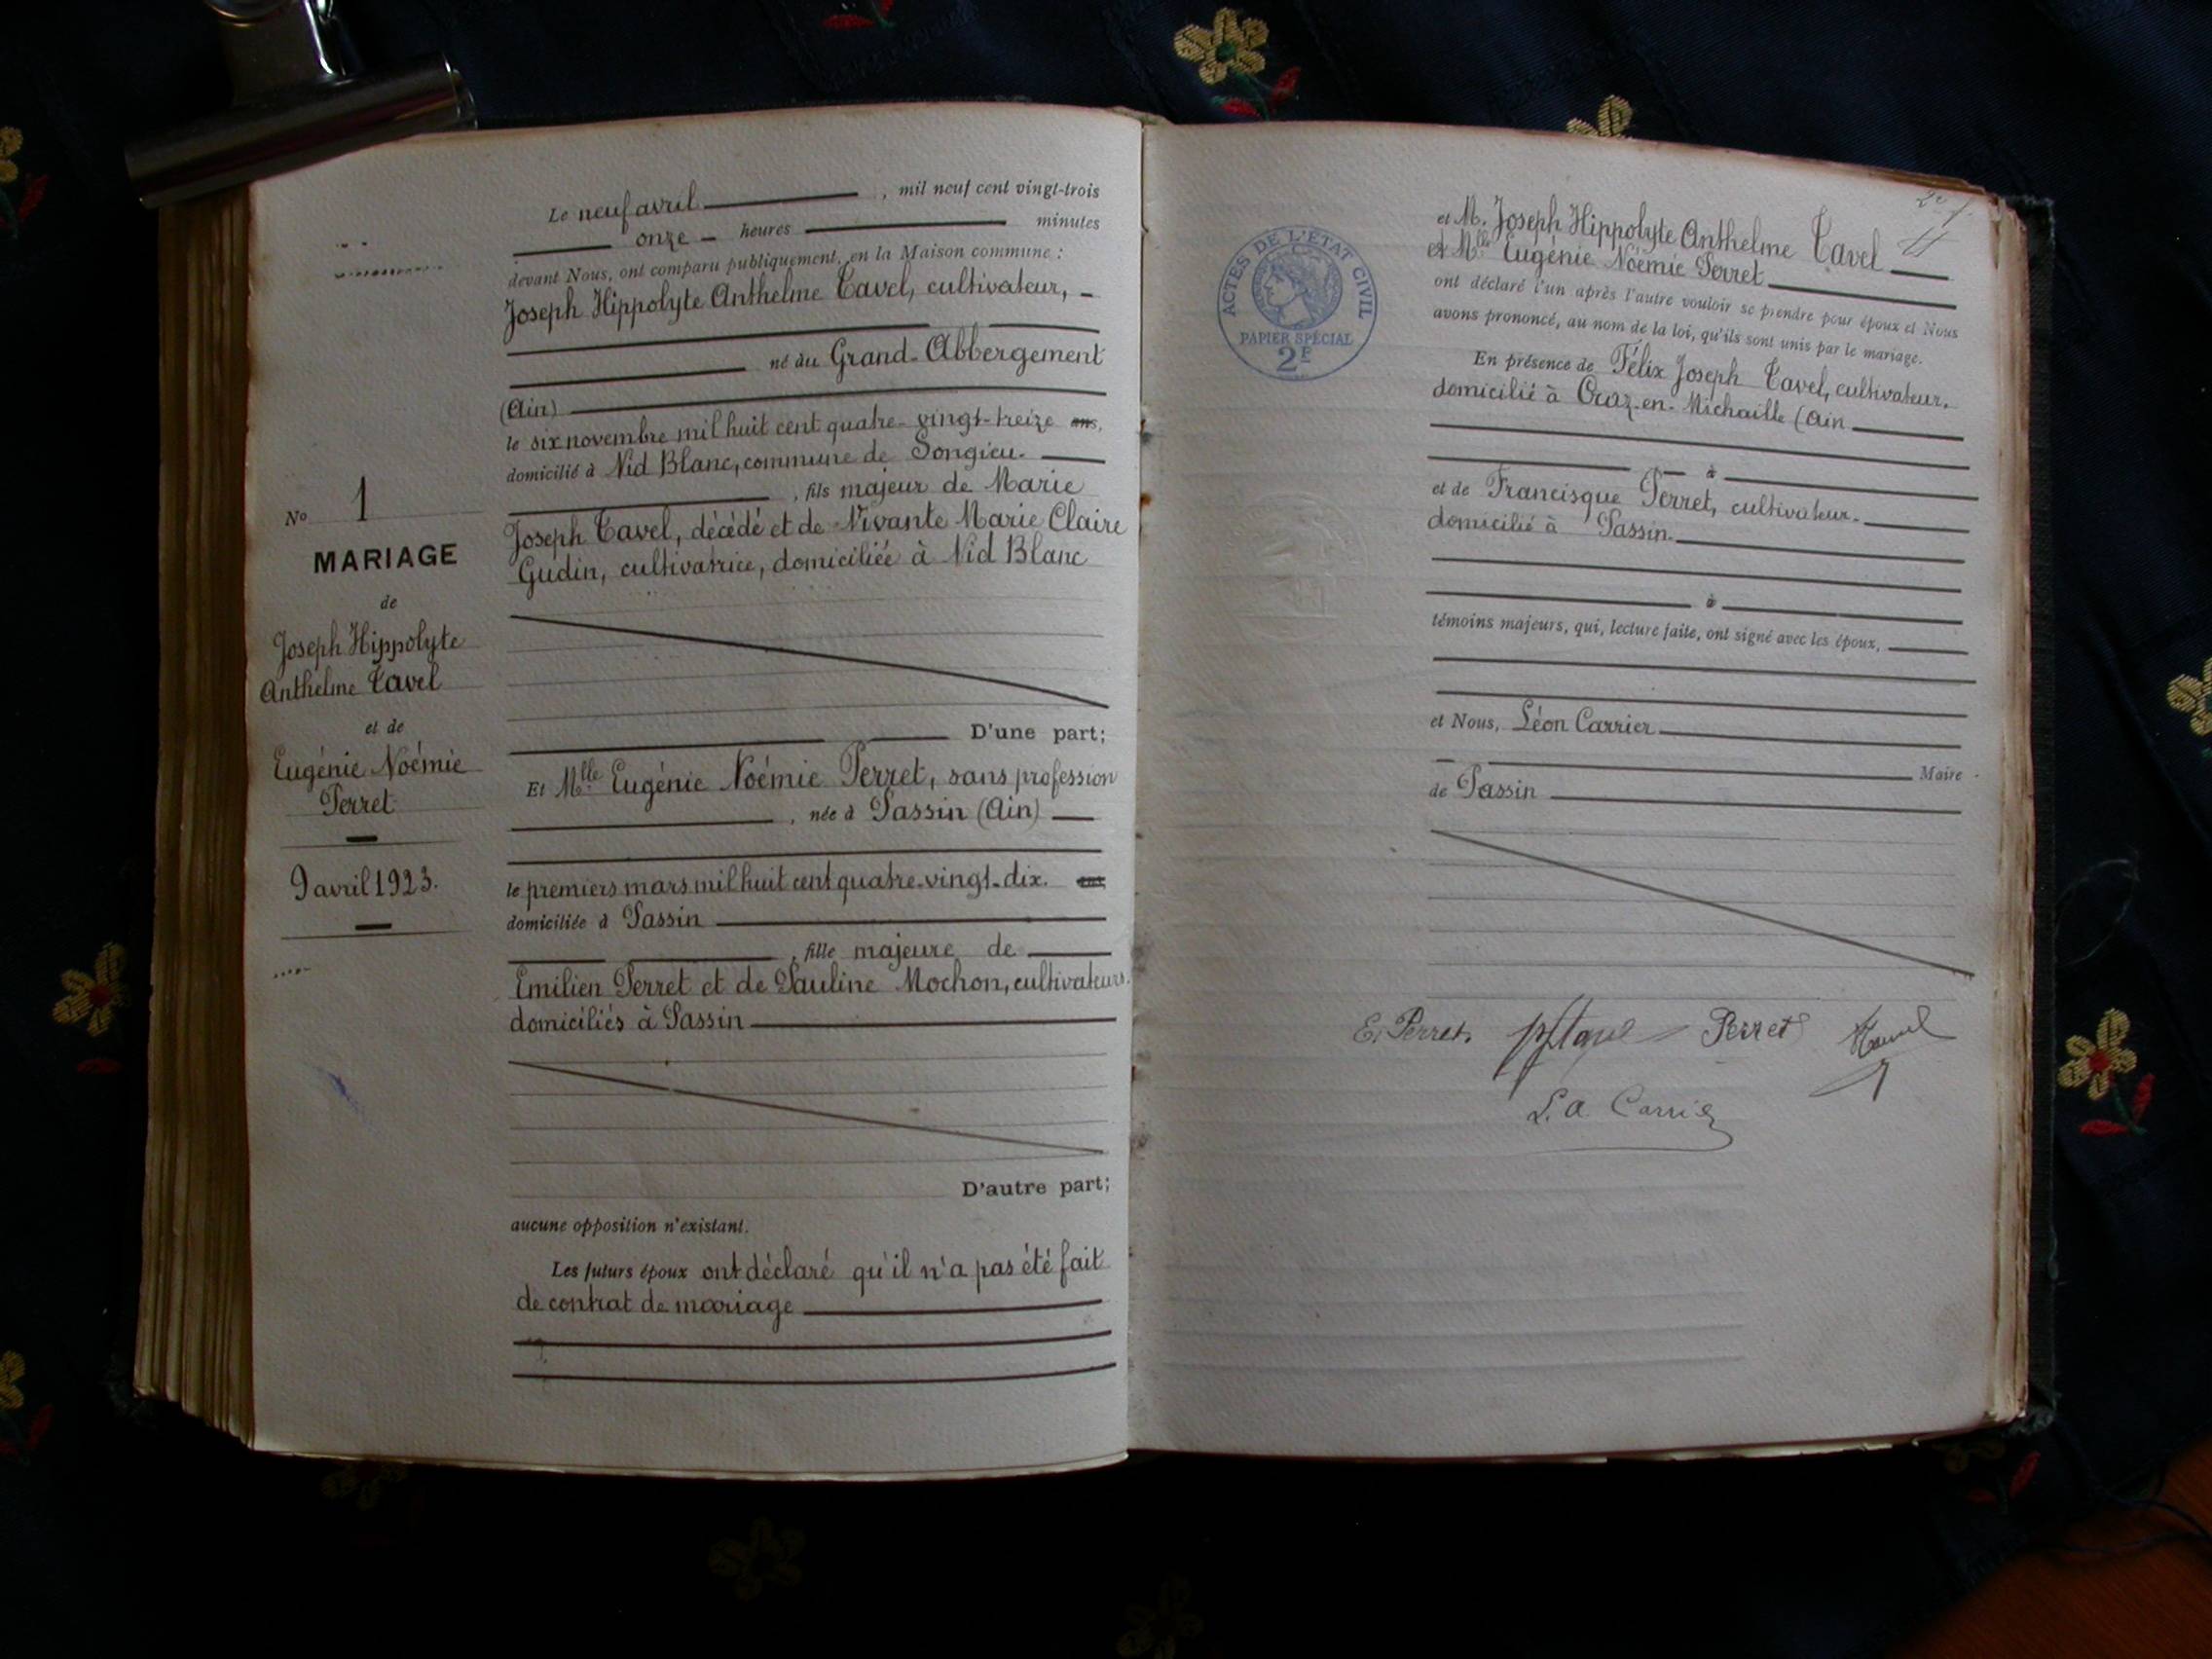 Le neuf avril , mil neuf cent vingt-trois
onze heures minutes
devant Nous, ont comparu publiquement, en la Maison commune :
Joseph Hippolyte Anthelme Tavel, cultivateur,
né au Grand-Abbergement
(Ain)
le six novembre mil huit cent quatre-vingt-treize ans,
domicilié à Nid Blanc, commune de Songieu.
, fils majeur de Marie
Joseph Tavel, décédé et de Vivante Marie Claire
Gudin, cultivatrice, domiciliée à Nid Blanc
D'une part;
Et Mlle Eugénie Noémie Perret, sans profession
, née à Passin (Ain)
le premiers mars mil huit cent quatre-vingt-dix. ans
domiciliée à Passin
, fille majeure de
Emilien Perret et de Pauline Mochon, cultivateurs.
domiciliés à Passin
D'autre part;
aucune opposition n'existant.
Les futurs époux ont déclaré qu'il n'a pas été fait
de contrat de mariage
No 1
MARIAGE
de
Joseph Hippolyte
Anthelme Tavel
et de
Eugénie Noémie
Perret
9 avril 1923.
ACTES DE L'ÉTAT CIVIL
PAPIER SPÉCIAL
2F
et M. Joseph Hippolyte Anthelme Tavel
et Mlle Eugénie Noémie Perret
ont déclaré l'un après l'autre vouloir se prendre pour époux et Nous
avons prononcé, au nom de la loi, qu'ils sont unis par le mariage.
En présence de Félix Joseph Tavel, cultivateur.
domicilié à Craz-en-Michaille (Ain
à
et de Francisque Perret, cultivateur.
domicilié à Passin.
à
témoins majeurs, qui, lecture faite, ont signé avec les époux,
et Nous, Léon Carrier
Maire
de Passin
E. Perret Perret
L. A Carrier